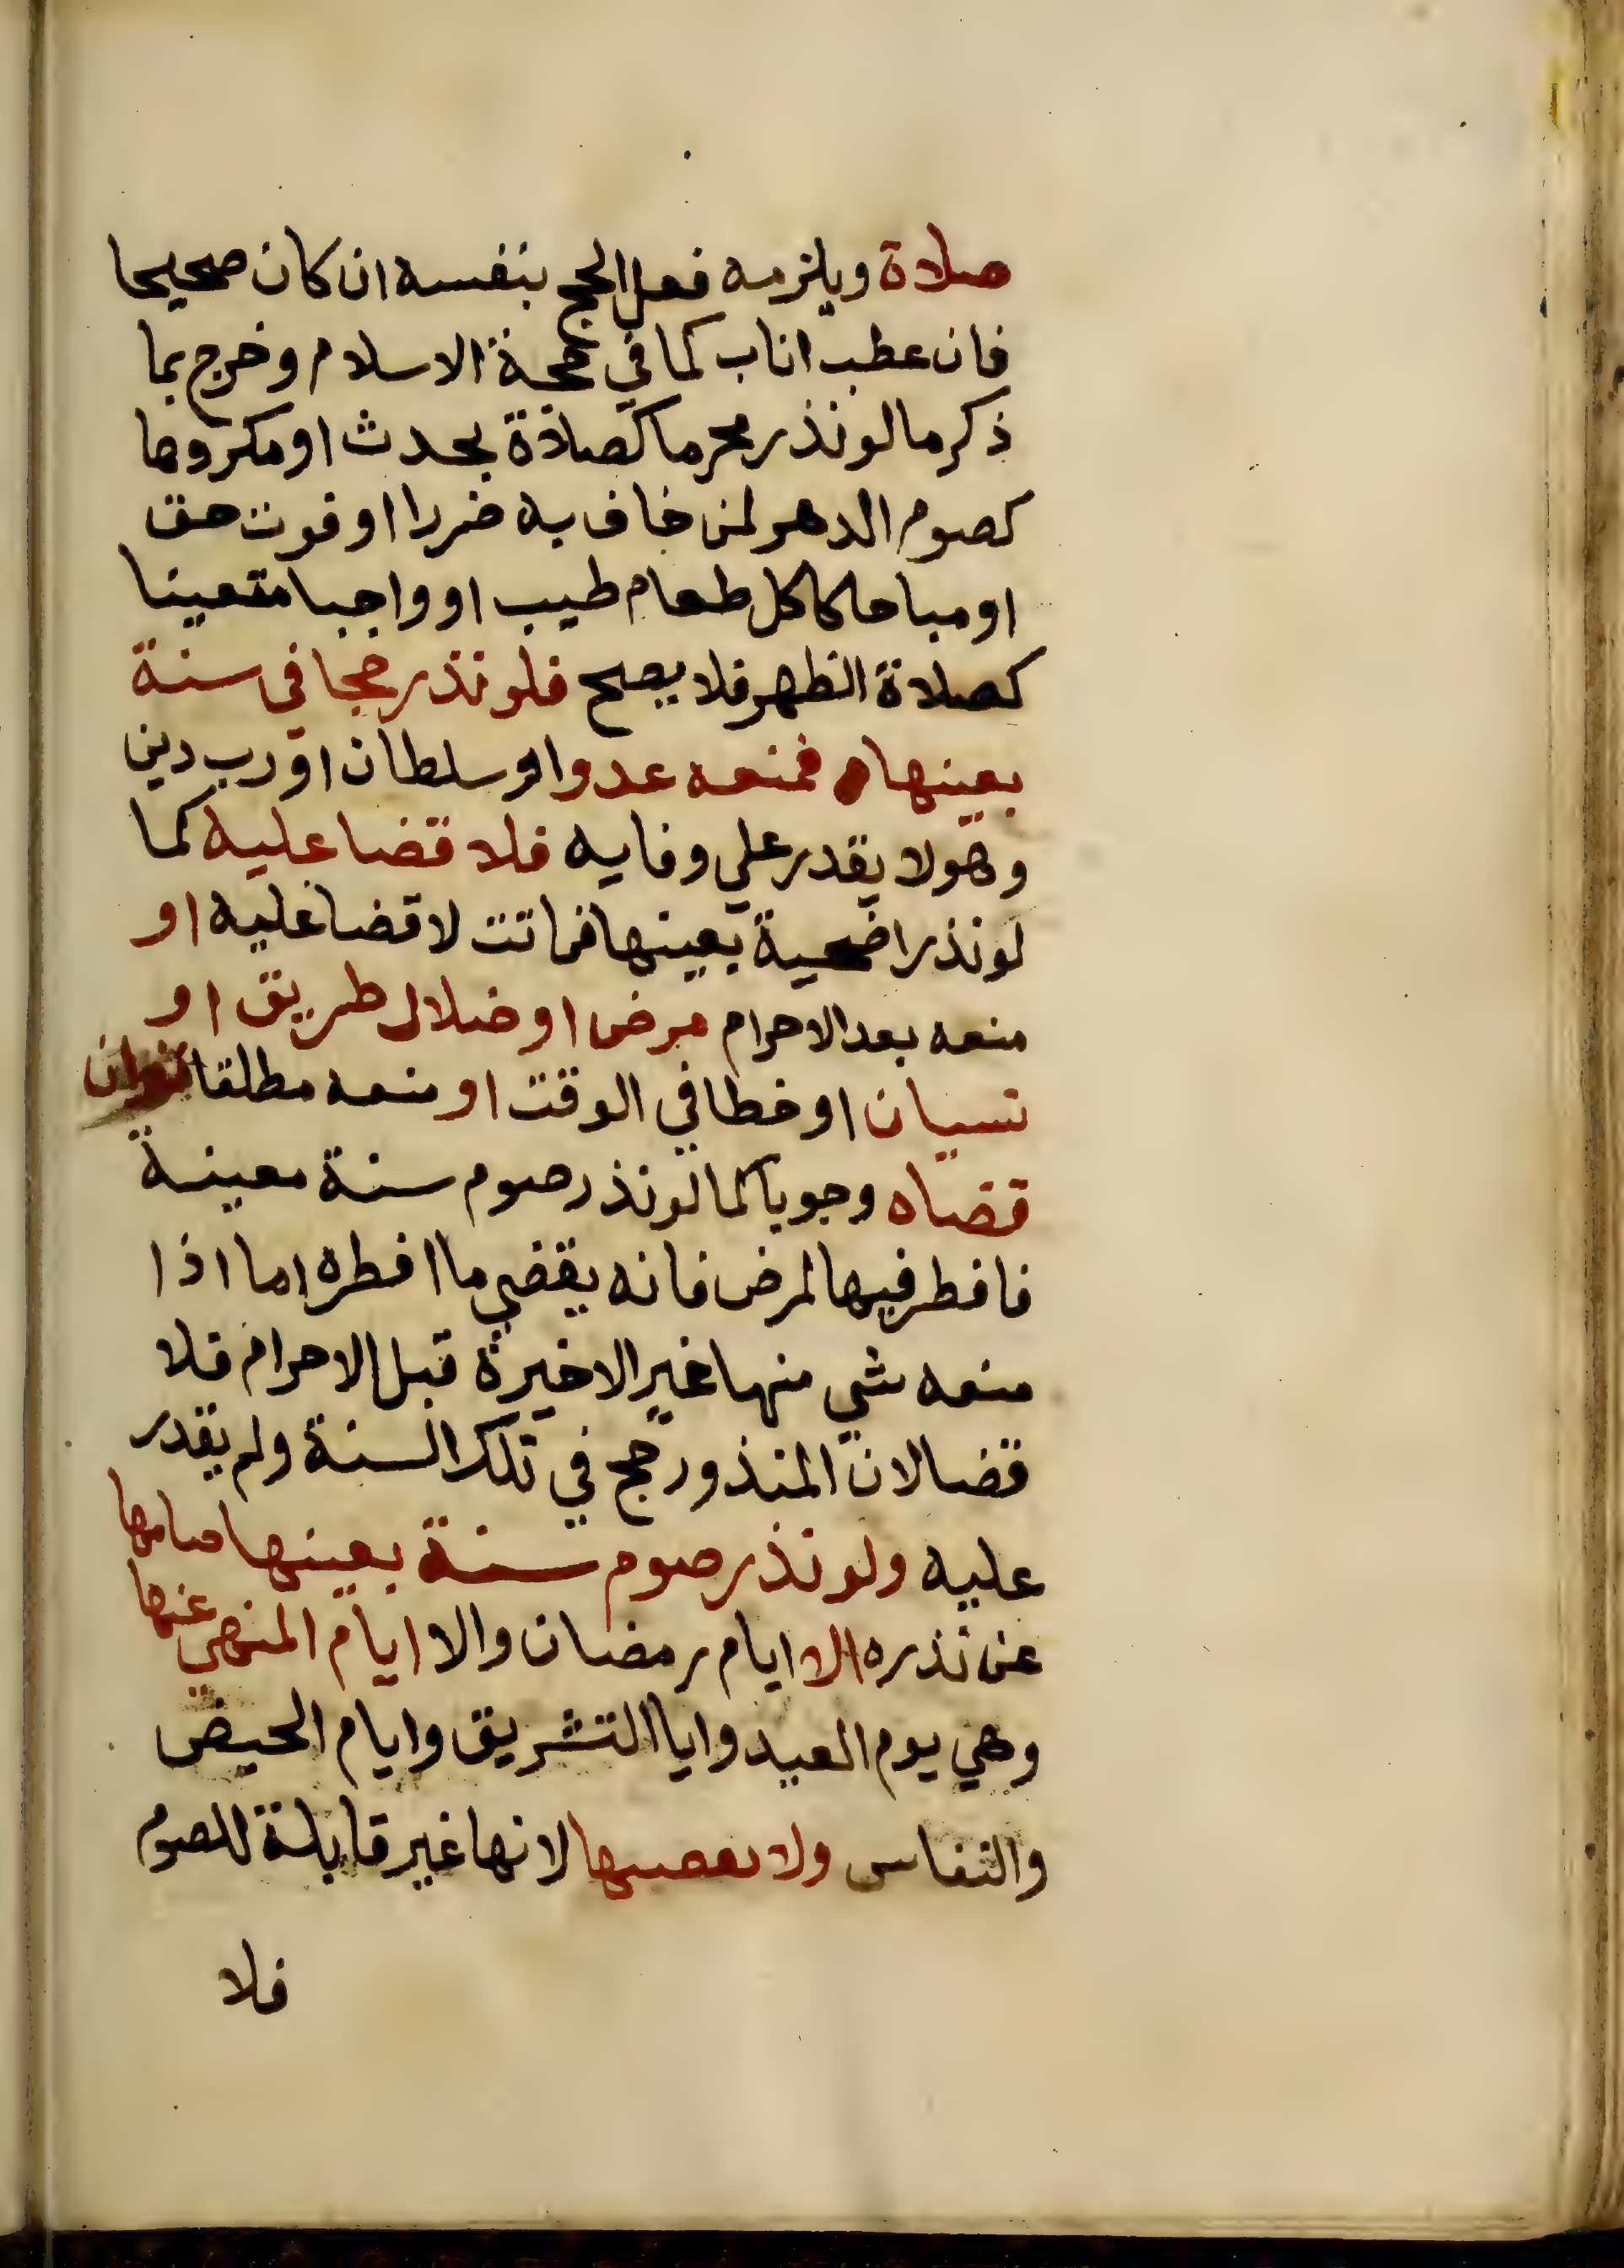 صلاة ويلزمه فعل الحج بنفسه ان كان صحيحا
فان عطب اناب كما في حجة الاسلام وخرج بما
ذكر ما لو نذر محرما كصلاة بحدث او مكروها
كصوم الدهر لمن خاف به ضررا او فوت حق
او مباحا كاكل طعام طيب او واجبا متعينا
كصلاة الظهر فلا يصح فلو نذر حجا في سنة
بعينها فمنعه عدو او سلطان او رب دين
وهو لا يقدر علي وفايه فلا قضا عليه كما
لو نذر اضحية بعينها فماتت لا قضا عليه او
منعه بعد الاحرام مرض او ضلال طريق او
نسيان او خطا في الوقت او منعه مطلقا
قضاه وجوبا كما لو نذر صوم سنة معينة
فافطر فيها لمرض فانه يقضي ما افطره اما اذا
منعه شي منها غير الاخيرة قبل الاحرام فلا
قضا لان المنذور حج في تلك السنة ولم يقدر
عليه ولو نذر صوم سنة بعينها صامها
عن نذره الا ايام رمضان والا ايام المنهي عنها
وهي يوم العيد وايا التشريق وايام الحيض
والنفاس ولا يقضيها لانها غير قابلة للصوم
فلا